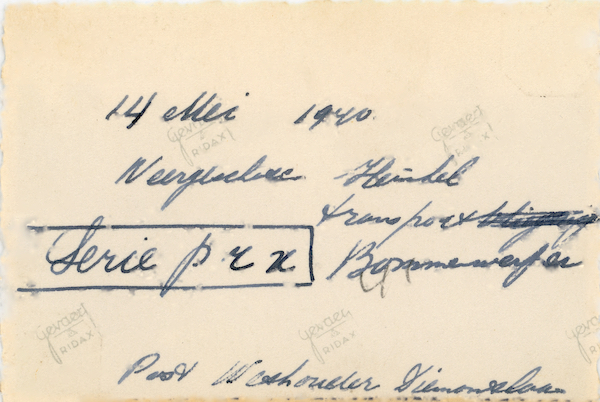 14 Mei 1940.
Heinkel
transport
Serie p r x Bommenwerper
Post Weshouder
Gevaert
RIDAX
Gevaert
RIDAX
Gevaert
RIDAX
Gevaert
RIDAX
Gevaert
RIDAX